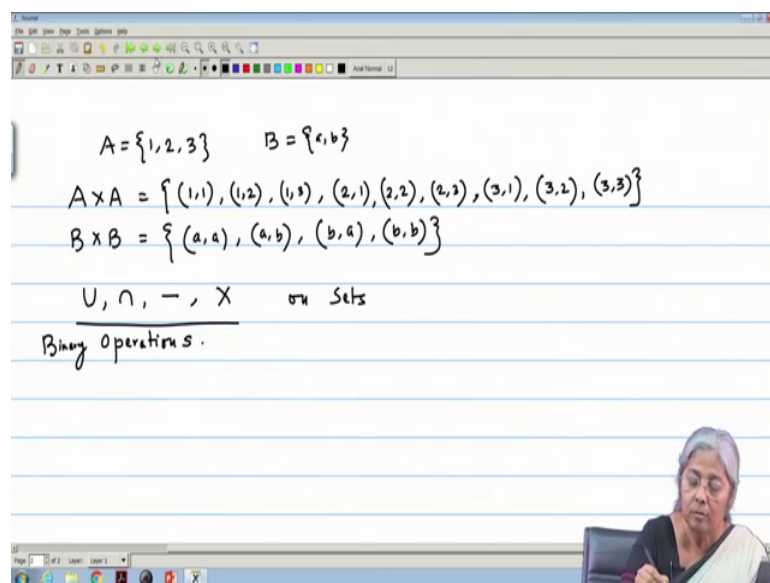 Journal
File Edit View Page Tools Options Help
Arial Normal 12
A = {1, 2, 3} B = {a, b}
A × A = { (1,1), (1,2), (1,3), (2,1), (2,2), (2,3), (3,1), (3,2), (3,3) }
B × B = { (a, a), (a, b), (b, a), (b, b) }
∪, ∩, −, × on Sets
Binary Operations.
Page 2 of 2 Layer: Layer 1